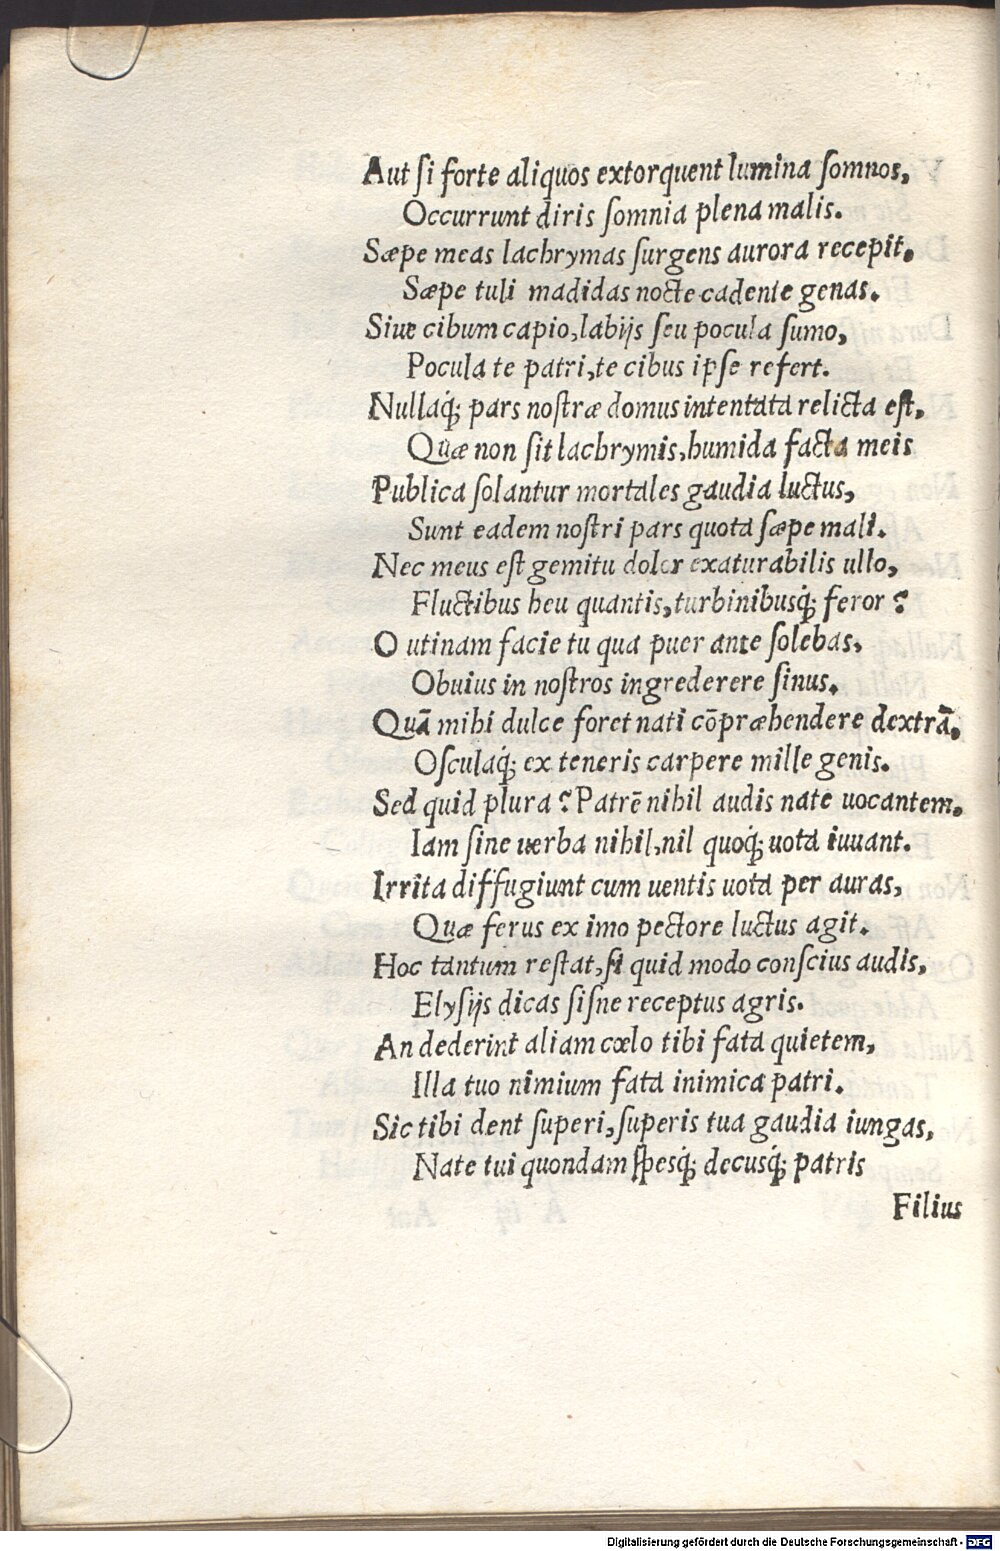 Aut si forte aliquos extorquent lumina somnos,
Occurrunt diris somnia plena malis.
Sæpe meas lachrymas surgens aurora recepit.
Sæpe tuli madidas nocte cadente genas.
Siue cibum capio, labijs seu pocula sumo,
Pocula te patri, te cibus ipse refert.
Nullaq; pars nostræ domus intentata relicta est,
Quæ non sit lachrymis, humida facta meis
Publica solantur mortales gaudia luctus,
Sunt eadem nostri pars quota sæpe mali.
Nec meus est gemitu dolor exaturabilis ullo,
Fluctibus heu quantis, turbinibusq; feror?
O utinam facie tu qua puer ante solebas,
Obuius in nostros ingrederere sinus.
Quã mihi dulce foret nati cõpræhendere dextrã,
Osculaq; ex teneris carpere mille genis.
Sed quid plura? Patrẽ nihil audis nate uocantem,
Iam sine uerba nihil, nil quoq; uota iuuant.
Irrita diffugiunt cum uentis uota per auras,
Quæ ferus ex imo pectore luctus agit.
Hoc tantum restat, si quid modo conscius audis,
Elysijs dicas sisne receptus agris.
An dederint aliam cœlo tibi fata quietem,
Illa tuo nimium fata inimica patri.
Sic tibi dent superi, superis tua gaudia iungas,
Nate tui quondam spesq; decusq; patris
Filius
Digitalisierung gefördert durch die Deutsche Forschungsgemeinschaft - DFG